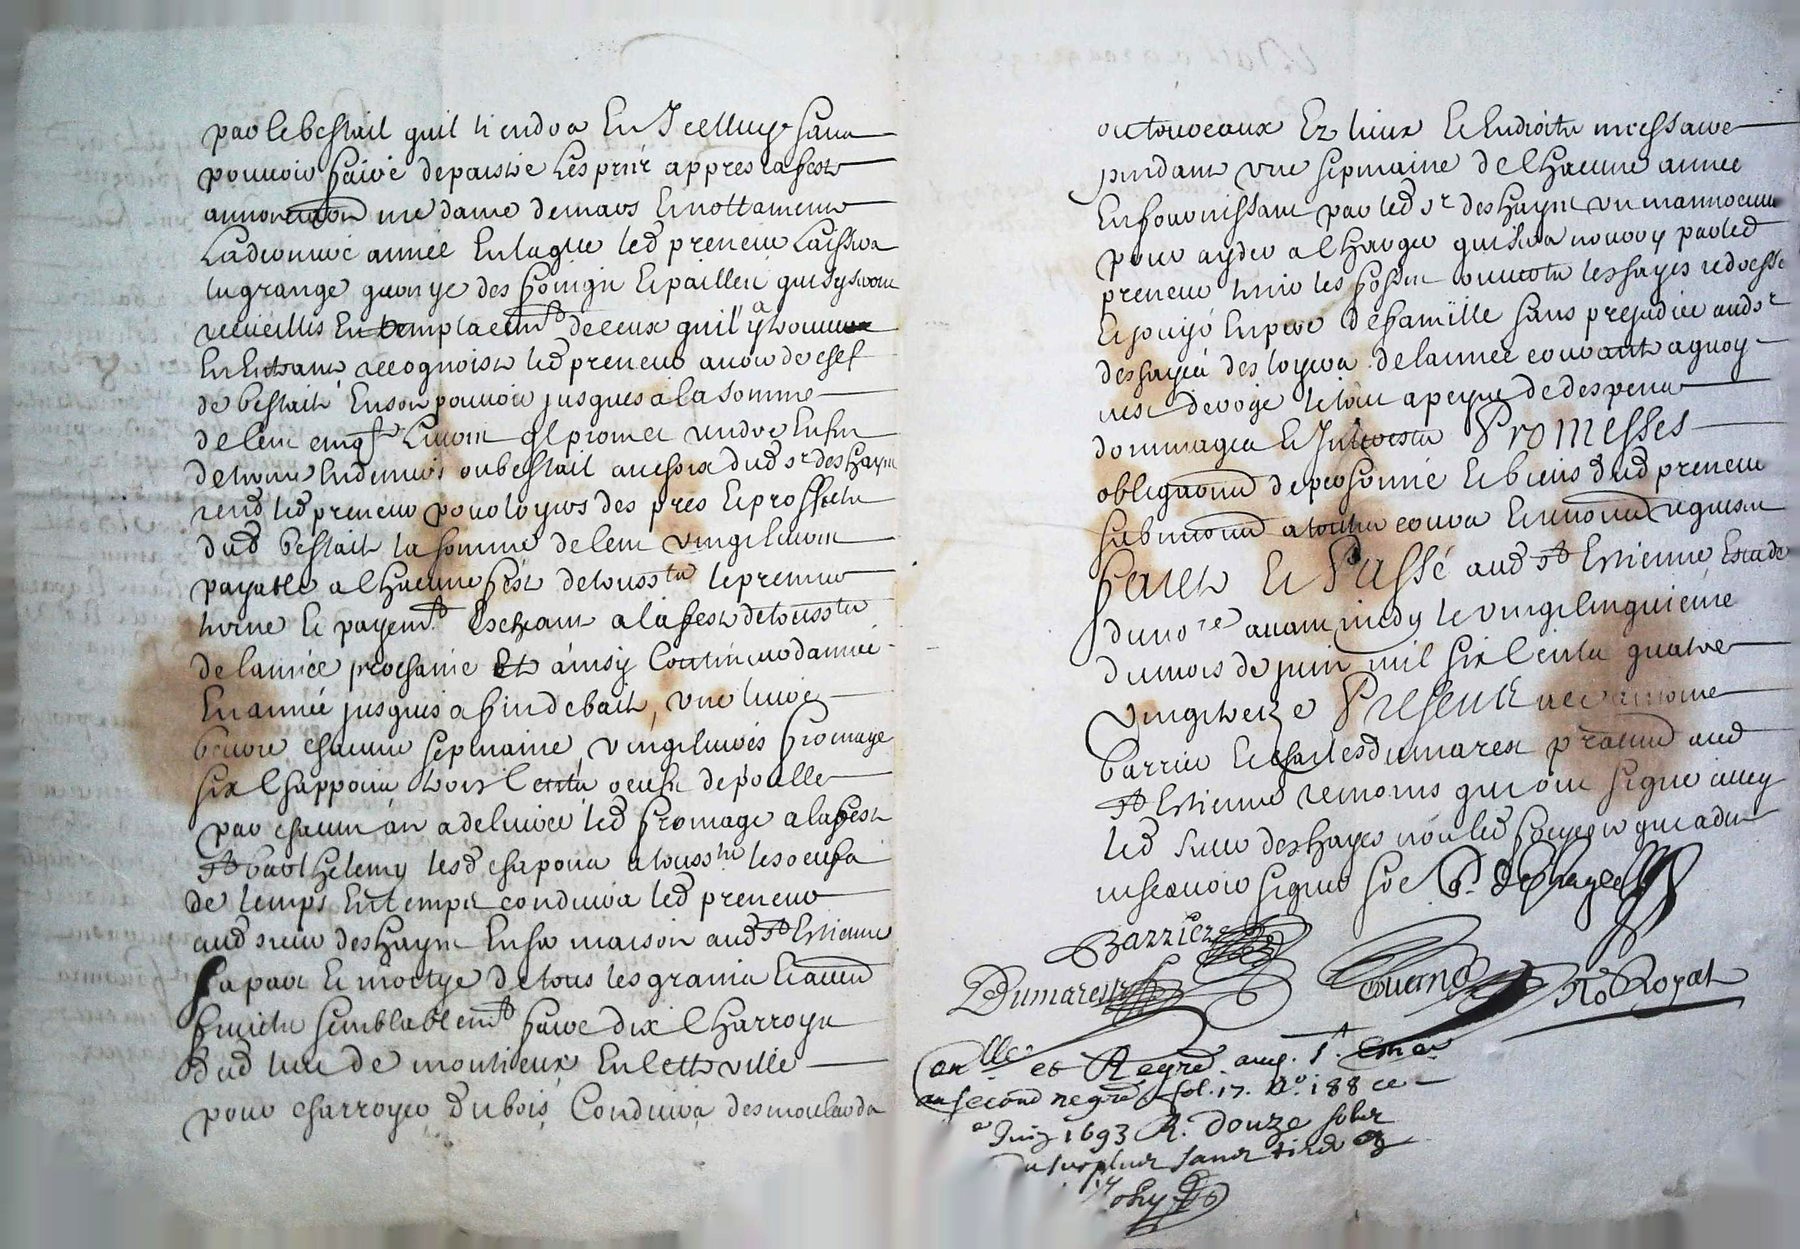 par le bestail quil tiendra En Icelluy sans
pouvoir faire depaistre Les prés appres la feste
annonciaon nre dame de mars Et nottamment
La derniere année En laqlle led preneur Laissera
la grange garnye des foings Et pailles qui sy seront
recueillis En remplacemt de ceux quil y a trouve
En Entrant, recognoist led preneur avoir de chef
de bestail En son pouvoir jusques a la somme
de cent cinqte Livres ql promet rendre En fin
de terme En deniers ou bestail au choix dud sr deshayes
rend led preneur pour loyers des pres Et proffits
dud bestail la somme de cent vingt livres
payable a Chacune feste de tousstz le premier
terme Et payemt Escheant a la feste de tousstz
de lannée prochaine Et ainsy Continuer dannée
En année jusques a fin de bail, une livre
beurre chacune sepmaine, vingt livres fromage
six Chappons trois Cents oeufs de poulle
par chacun an a delivrer led fromage a la feste
st barthelemy lesd chapons a toussts les oeufs
de temps En temps conduira led preneur
aud sieur deshayes En sa maison aud st Estienne
sa part Et moitye de tous les grains Et autres
fruicts semblablemt faire dix Charroys
dud lieu de montieux En cette ville
pour charroyer du bois Conduira des moulards
ou touveaux Ez lieux Et Endroits necessaires
pendant une sepmaine de Chacune année
En fournissant par led sr deshayes un mannoeuvre
pour ayder a Charger qui sera nourry par led
preneur tenir les fossez ouverts les hayes redressees
Et jouyr En pere de famille sans prejudice aud sr
deshayes des loyers de lannée courante a quoy
nest deroge le tout a peyne de despens
dommages Et Interests Promesses
obligaons de personne Et biens dud preneur
submons a toutes cours Et renons requises
faict Et Passé aud st Estienne Estude
du nore avant midy le vingt cinquieme
du mois de juin mil six Cents quatre
Vingt treize Presents Me antoine
barrier Et charles dumarest praticiens aud
st Estienne temoins qui ont signé avec
led sieur deshayes non led preneur qui a dit
ne scavoir signer soe P. deshayes
Barrier
Dumarest
Ro Royat
Conllé et Regré aug. st. Estne
au second regre fol. 17. No. 188 ce
Juin 1693 R. douze solz
du surplus sans tirer